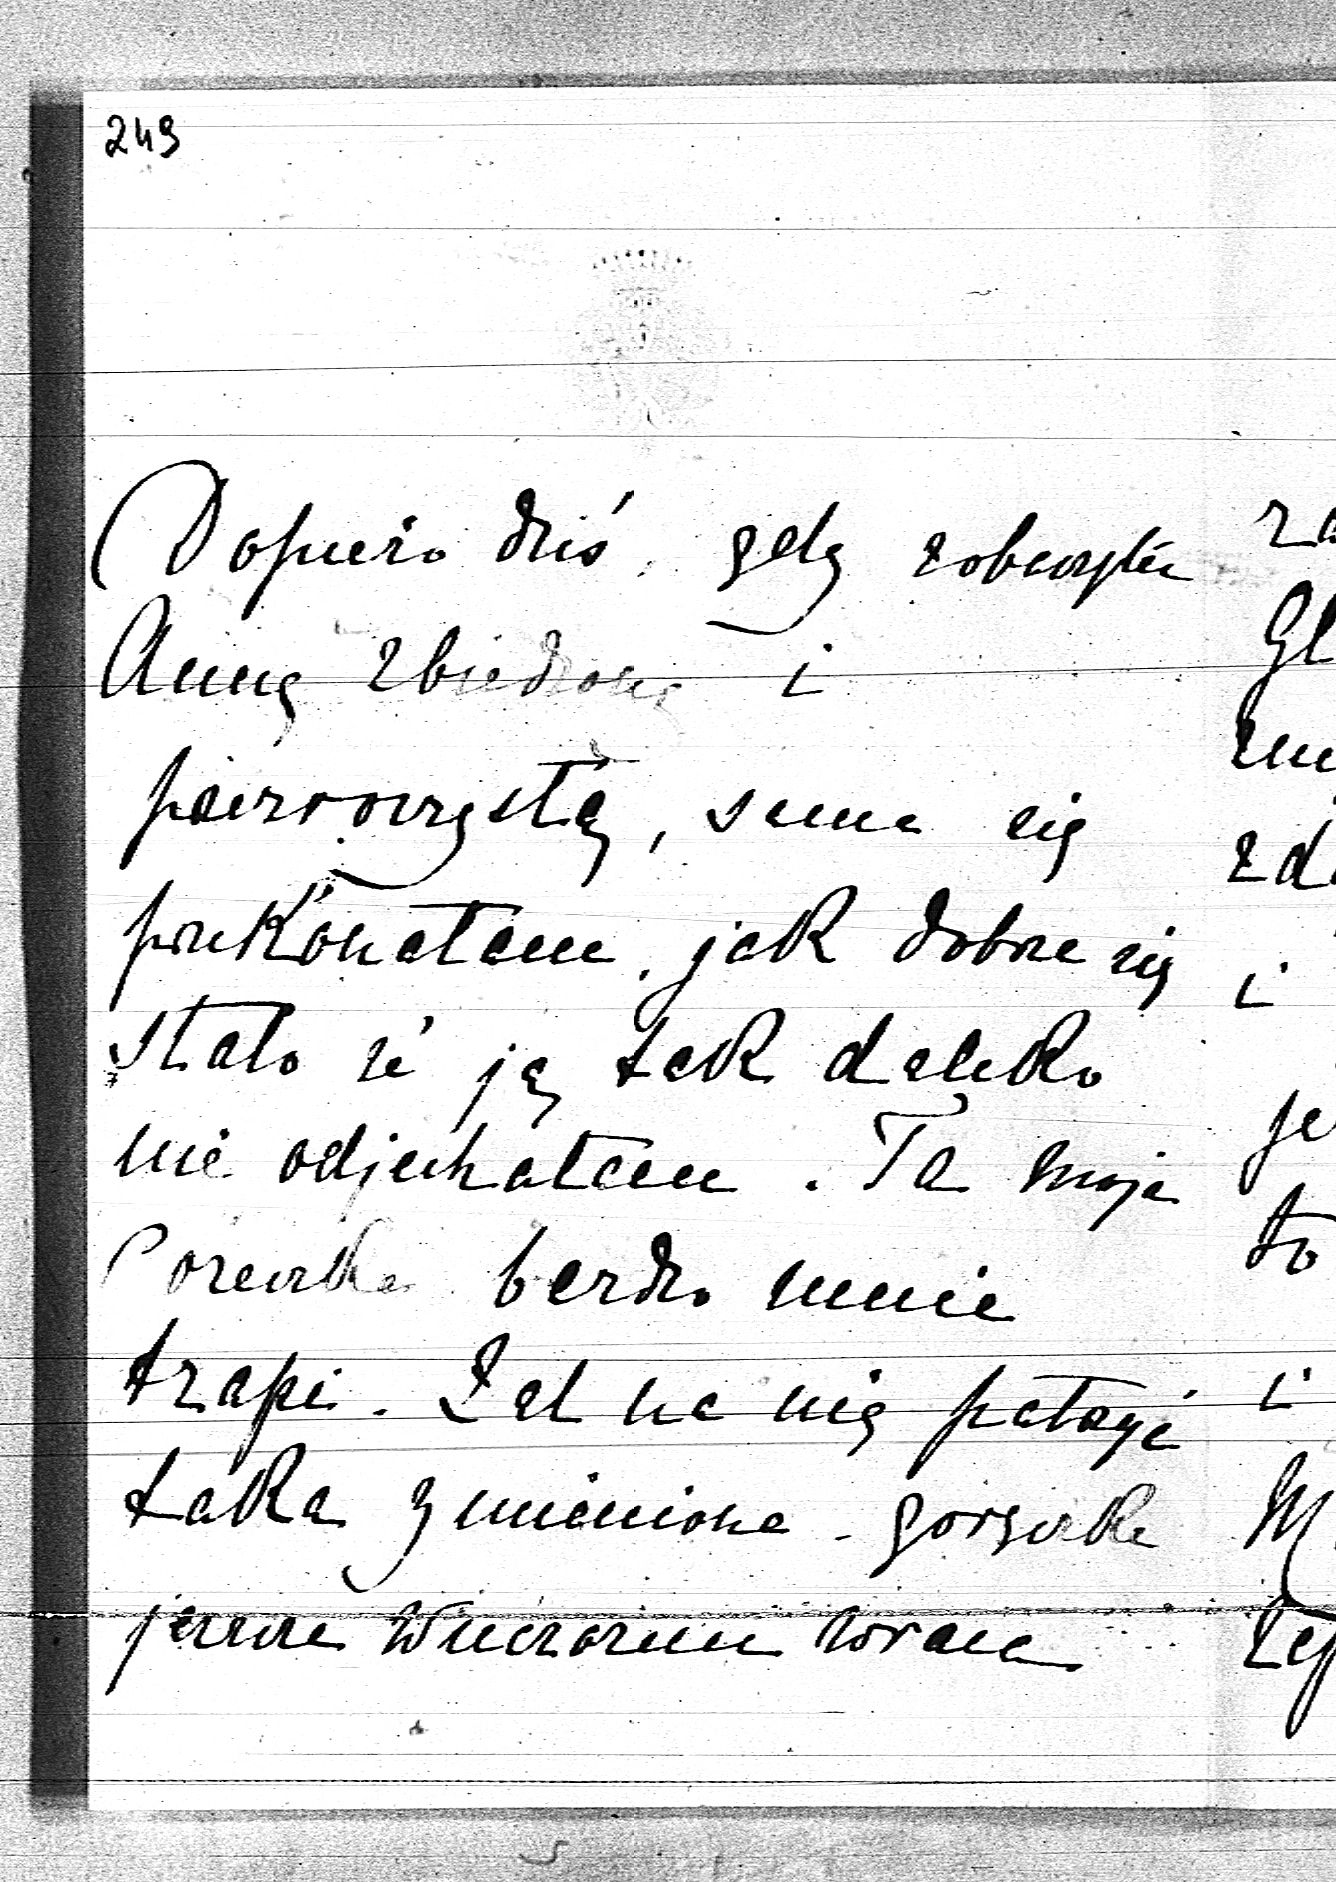 249
Dopiero dziś, gdy zobaczyłam
Annę zbiedzoną i
przezroczystą, sama się
przekonałam, jak dobrze się
stało że ją tak daleko
nie odjechałam. Ta moja
Coreczka bardzo mnie
trapi. Żal na nią patrzyć
taka zmieniona - gorączka
jeszcze wieczorem wraca
za
Gł
zd
i
je
to
i
M